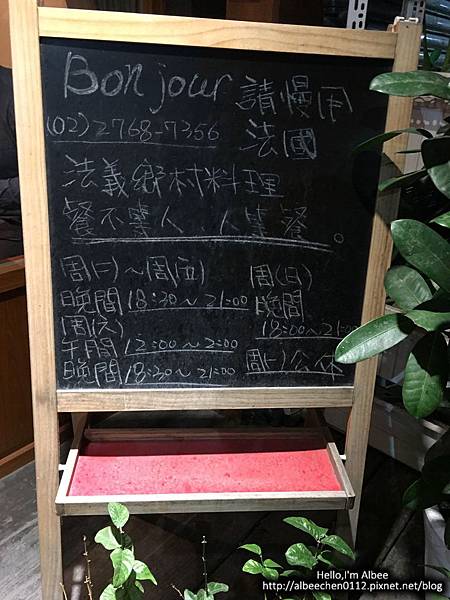 Bonjour 請慢用
(02)2768-7356 法國
法義鄉村料理
餐不等人 人等餐。
周(二)~周(五)
晚間 18:30~21:00
周(六)
午間 12:00~2:00
晚間 18:30~21:00
周(日)
晚間
18:00~21:00
周(一)公休
Hello,I'm Albee
http://albeechen0112.pixnet.net/blog